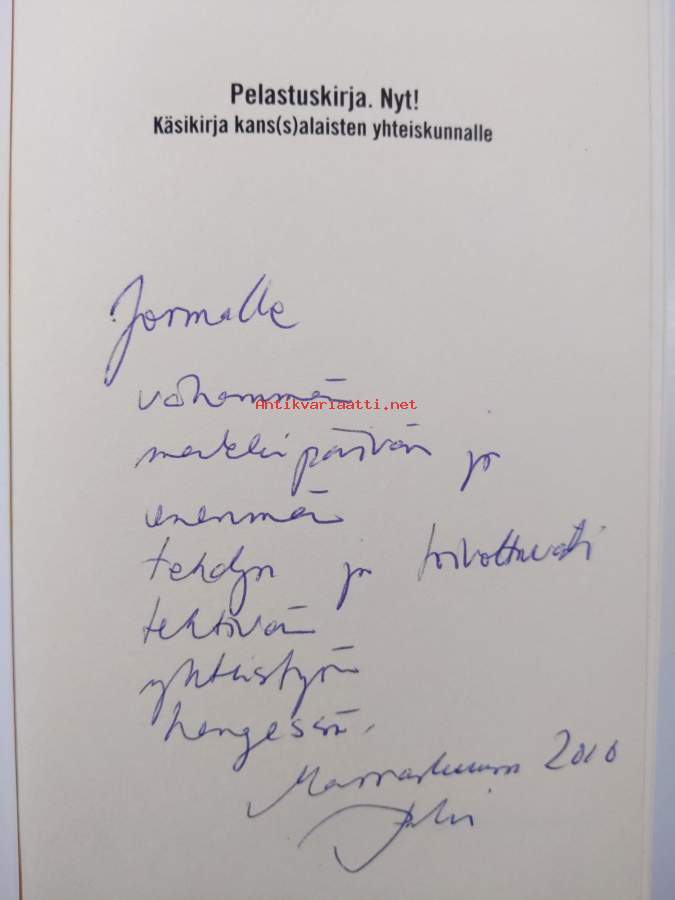 Pelastuskirja. Nyt!
Käsikirja kans(s)alaisten yhteiskunnalle
Jormalle
vähemmän
Antikvariaatti.net
merkkipäivän ja
enemmän
tehdyn ja toivottavasti
tehtävän
yhteistyön
hengessä,
Marraskuussa 2010